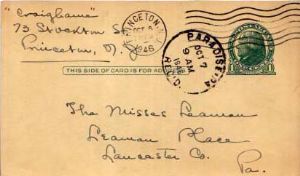 "Craighame"
73 Stockton St
Princeton, N.J.
PRINCETON, N.J.
OCT 6
1946
PARADISE, PA.
OCT 7
9 AM
1946
REC'D.
THIS SIDE OF CARD IS FOR AD
The Misses Leaman
Leaman Place
Lancaster Co.
Pa.